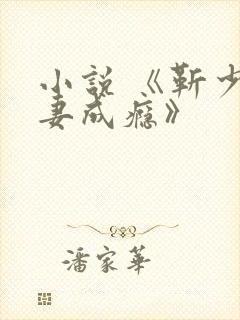 小说《靳少
妻成瘾》
潘家华